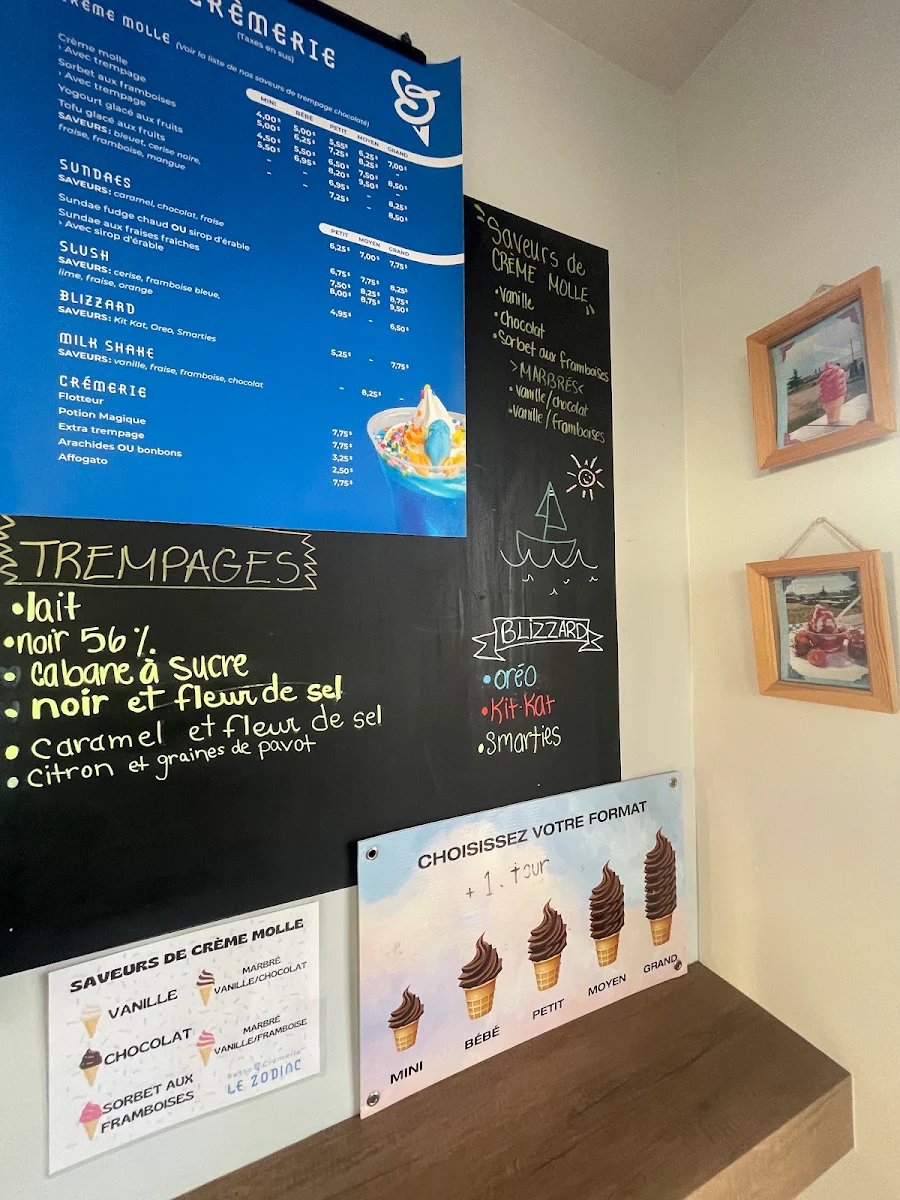 CRÈMERIE
(Taxes en sus)
CRÈME MOLLE (Voir la liste de nos saveurs de trempage chocolaté)
MINI BÉBÉ PETIT MOYEN GRAND
Crème molle 4,00$ 5,00$ 5,55$ 6,25$ 7,00$
› Avec trempage 5,00$ 6,25$ 7,25$ 8,25$ –
Sorbet aux framboises 4,50$ 5,50$ 6,50$ 7,50$ 8,50$
› Avec trempage 5,50$ 6,95$ 8,20$ 9,50$ –
Yogourt glacé aux fruits – – 6,95$ – 8,25$
Tofu glacé aux fruits – – 7,25$ – 8,50$
SAVEURS: bleuet, cerise noire,
fraise, framboise, mangue
SUNDAES
PETIT MOYEN GRAND
SAVEURS: caramel, chocolat, fraise 6,25$ 7,00$ 7,75$
Sundae fudge chaud OU sirop d'érable 6,75$ 7,75$ 8,25$
Sundae aux fraises fraîches 7,50$ 8,25$ 8,75$
› Avec sirop d'érable 8,00$ 8,75$ 9,50$
SLUSH 4,95$ – 6,50$
SAVEURS: cerise, framboise bleue,
lime, fraise, orange
BLIZZARD 5,25$ – 7,75$
SAVEURS: Kit Kat, Oreo, Smarties
MILK SHAKE – 8,25$ –
SAVEURS: vanille, fraise, framboise, chocolat
CRÉMERIE
Flotteur 7,75$
Potion Magique 7,75$
Extra trempage 3,25$
Arachides OU bonbons 2,50$
Affogato 7,75$
"Saveurs de
CRÈME MOLLE"
•Vanille
•Chocolat
•Sorbet aux framboises
>MARBRÉS<
•vanille/chocolat
•vanille/framboises
TREMPAGES
•lait
•noir 56%
•cabane à sucre
•noir et fleur de sel
•caramel et fleur de sel
•citron et graines de pavot
BLIZZARD
•oréo
•Kit-Kat
•Smarties
CHOISISSEZ VOTRE FORMAT
+ 1. tour
MINI BÉBÉ PETIT MOYEN GRAND
SAVEURS DE CRÈME MOLLE
VANILLE
MARBRÉ
VANILLE/CHOCOLAT
CHOCOLAT
MARBRÉ
VANILLE/FRAMBOISE
SORBET AUX
FRAMBOISES
Resto Crèmerie
LE ZODIAC